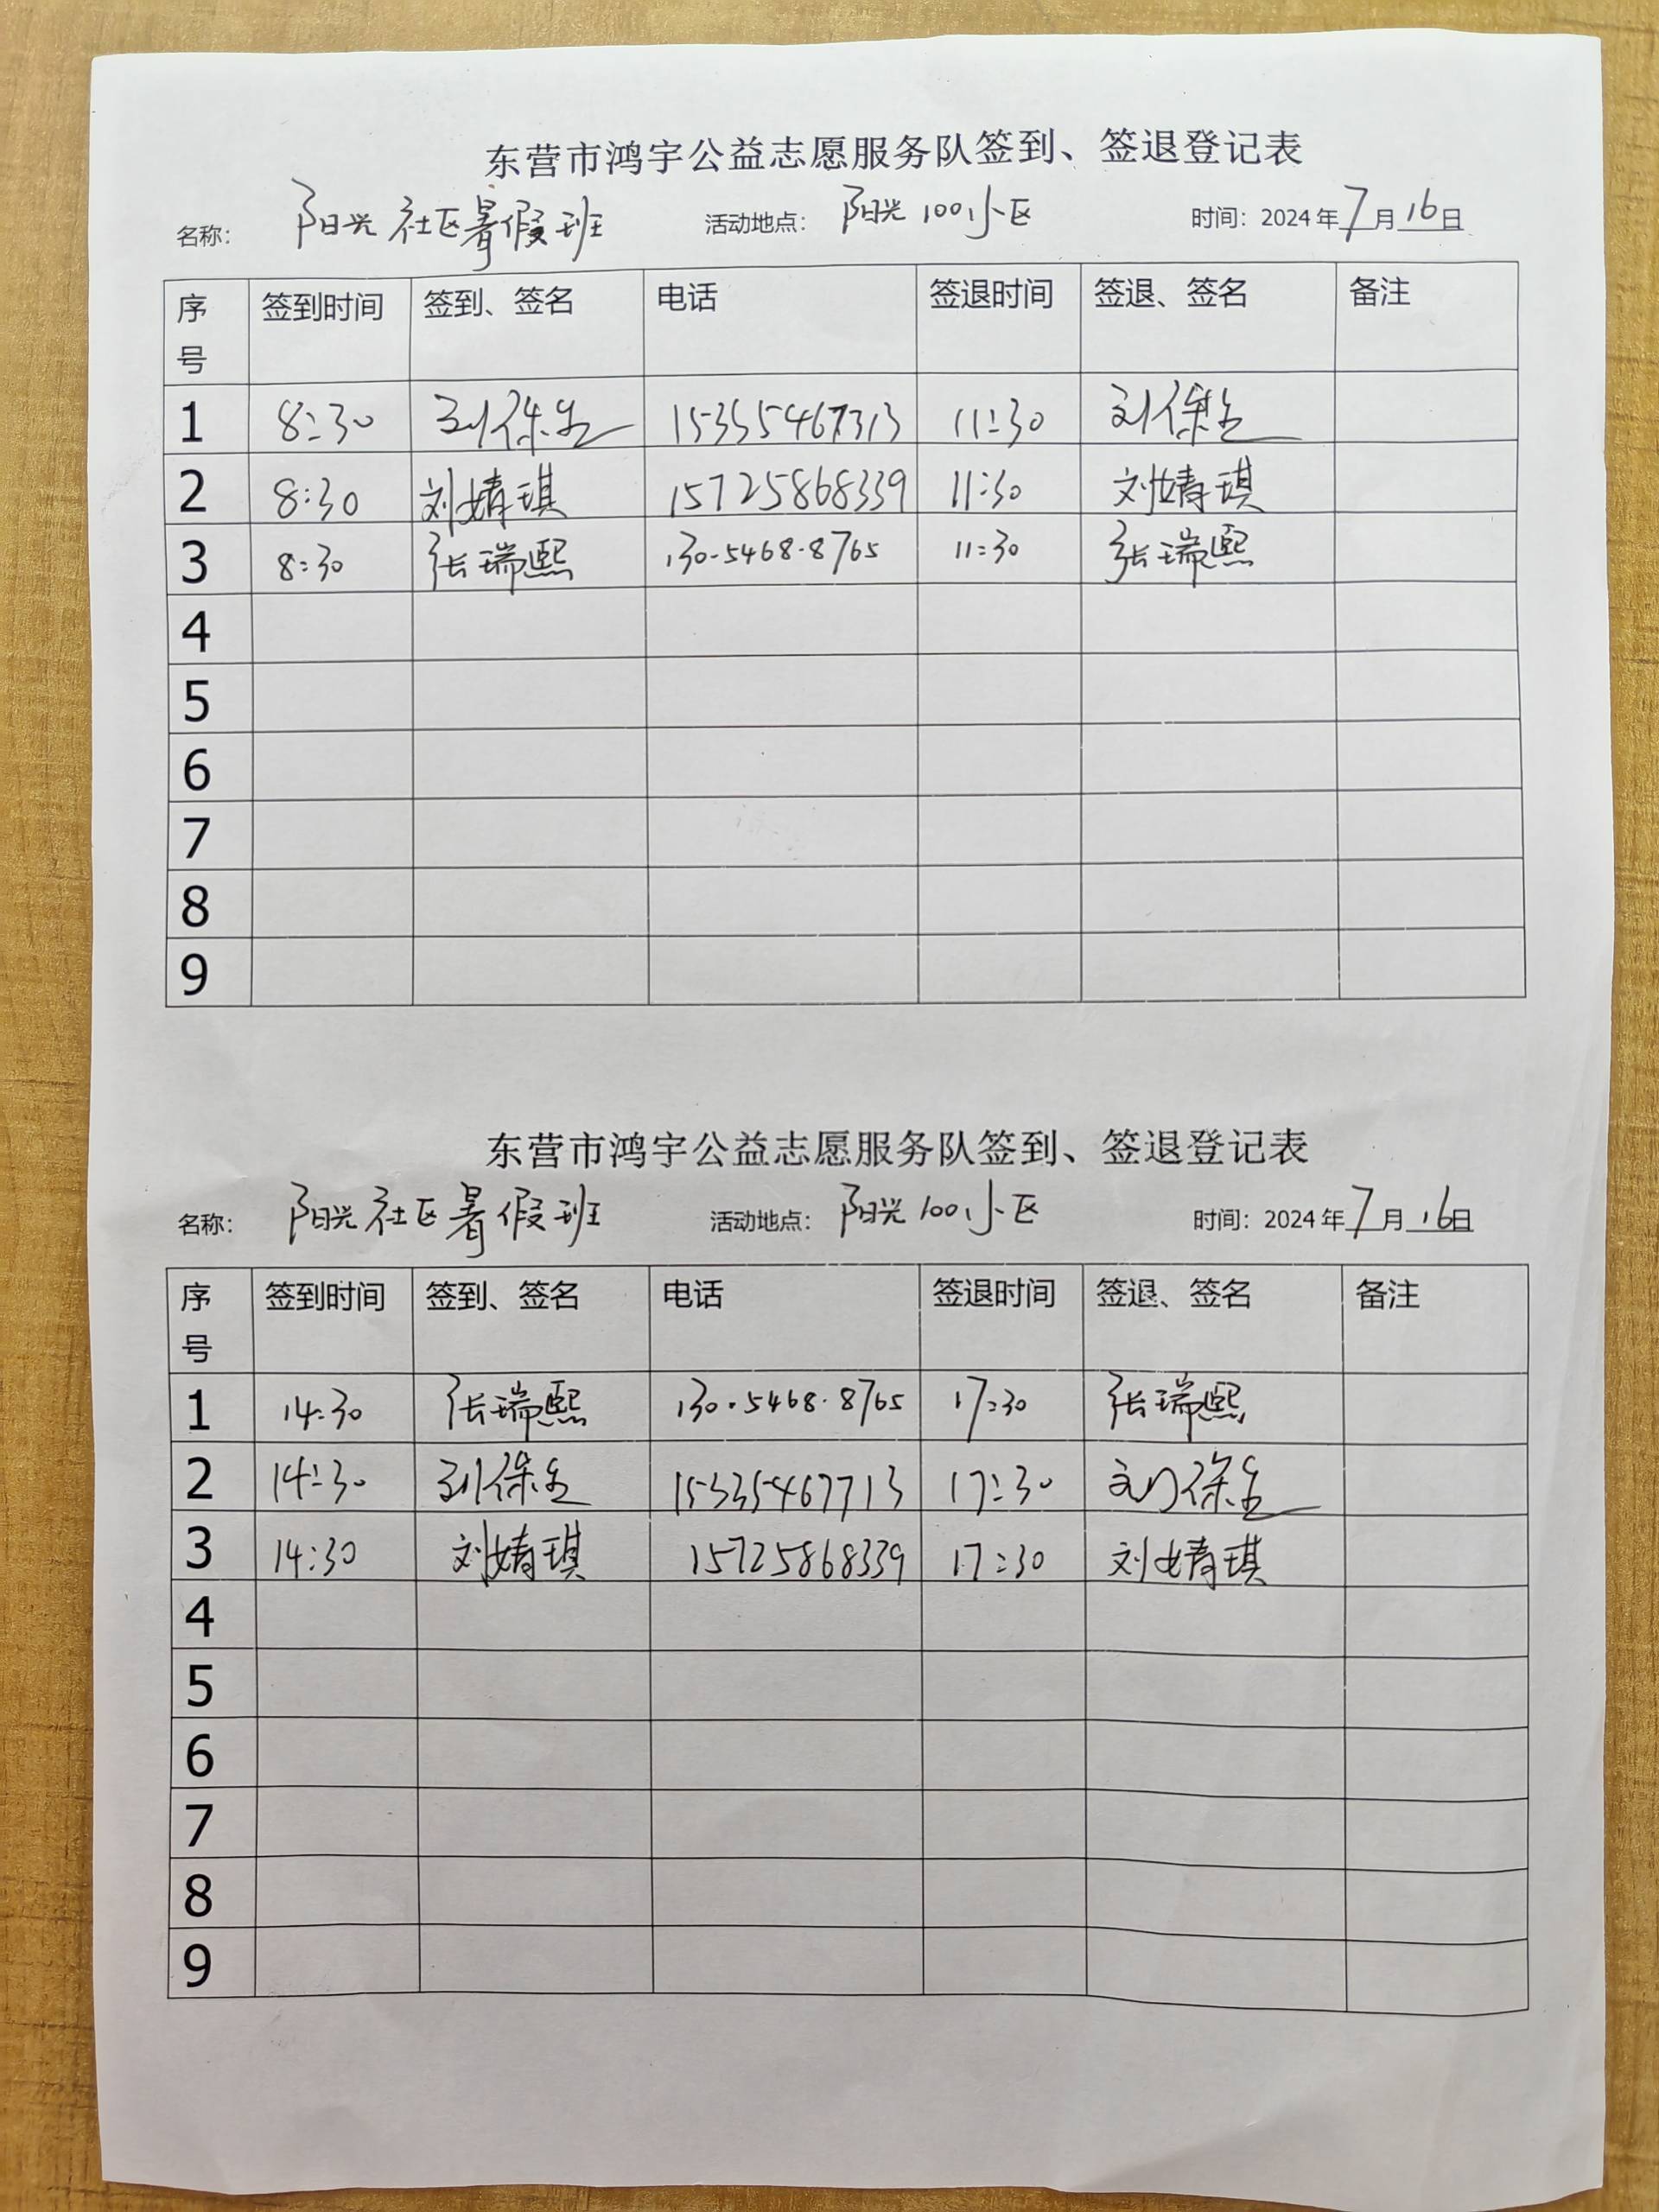 东营市鸿宇公益志愿服务队签到、签退登记表
名称： 阳光社区暑假班 活动地点： 阳光100小区 时间：2024年7月16日
序号 签到时间 签到、签名 电话 签退时间 签退、签名 备注
1 8:30 刘保生 11:30 刘保生
2 8:30 刘婧琪 15725868339 11:30 刘婧琪
3 8:30 张瑞熙 130-5468-8765 11:30 张瑞熙
4
5
6
7
8
9
东营市鸿宇公益志愿服务队签到、签退登记表
名称： 阳光社区暑假班 活动地点： 阳光100小区 时间：2024年7月16日
序号 签到时间 签到、签名 电话 签退时间 签退、签名 备注
1 14:30 张瑞熙 130.5468.8765 17:30 张瑞熙
2 14:30 刘保生 17:30 刘保生
3 14:30 刘婧琪 15725868339 17:30 刘婧琪
4
5
6
7
8
9